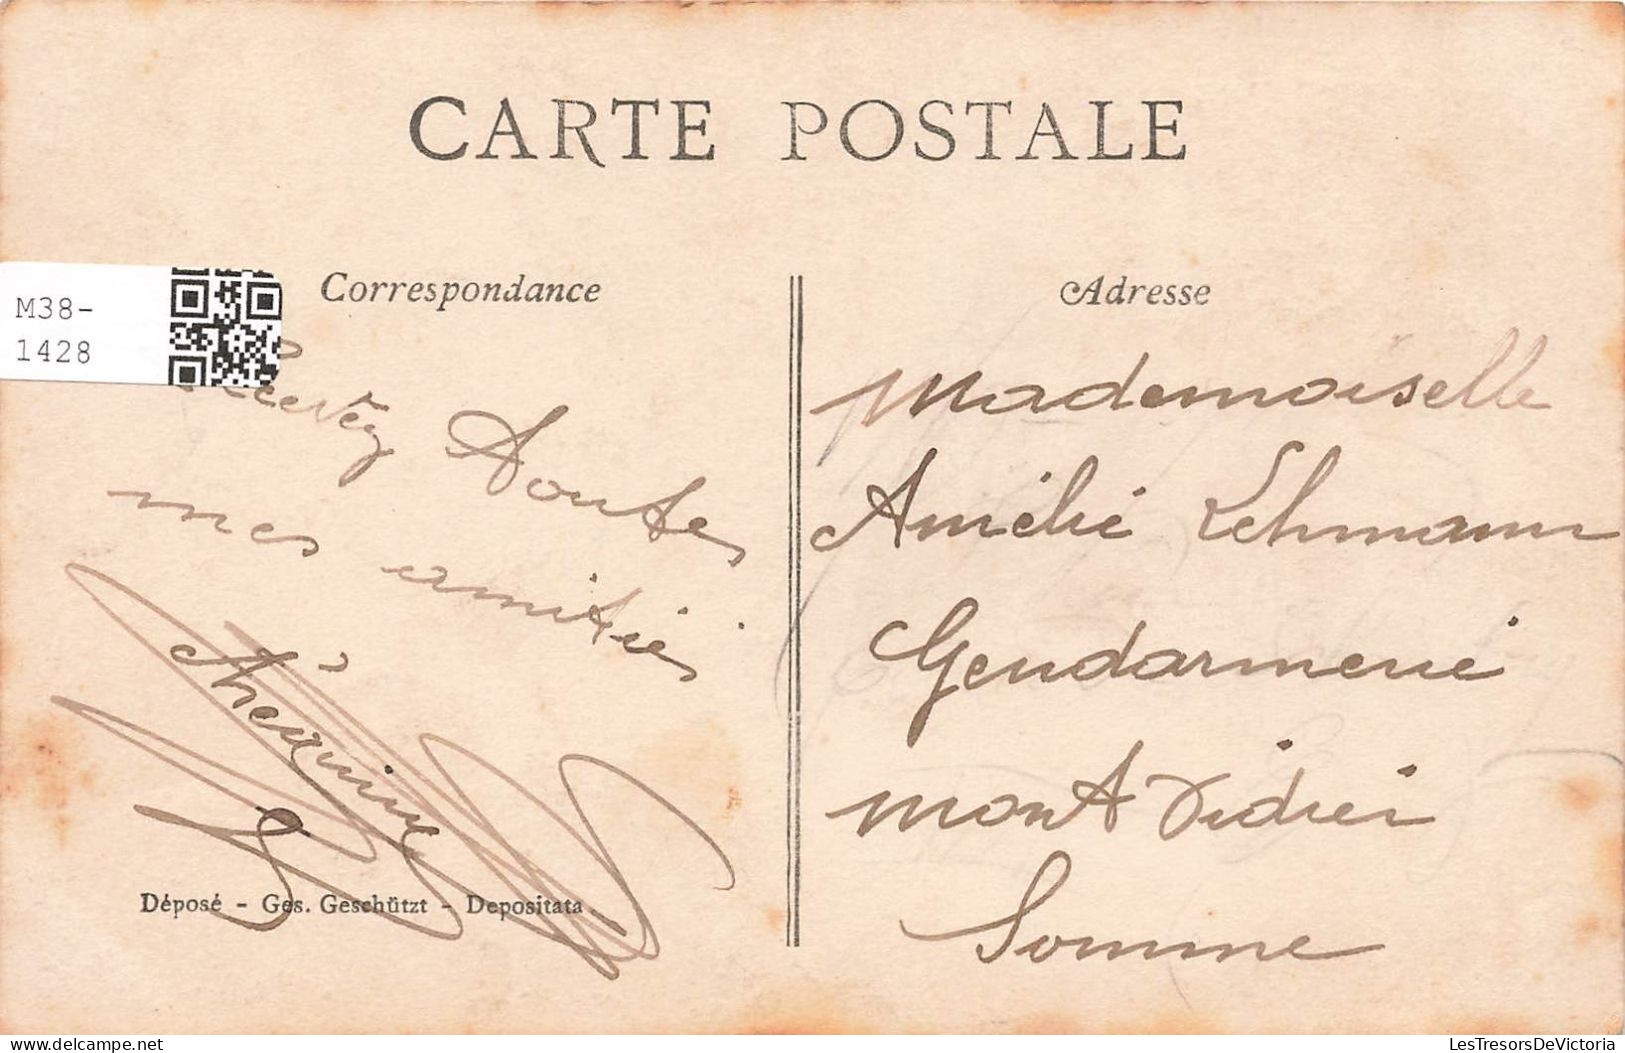 CARTE POSTALE
M38-
1428
Correspondance
toutes
mes amitiés
Déposé - Ges. Geschützt - Depositata
Adresse
Mademoiselle
Amélie Lehmann
Gendarmerie
Montdidier
Somme
LesTresorsDeVictoria
www.delcampe.net